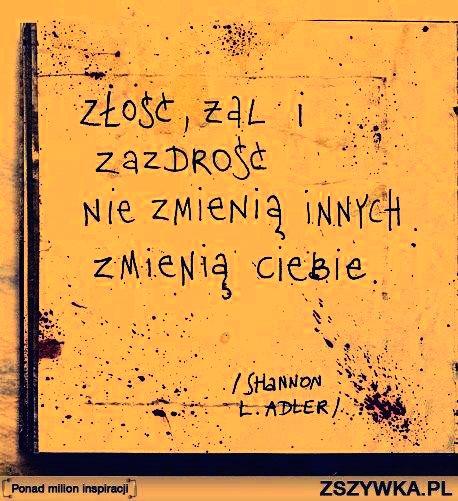 ZŁOŚĆ, ŻAL I
ZAZDROŚĆ
NIE ZMIENIĄ INNYCH.
ZMIENIĄ CIEBIE.
/SHANNON
L. ADLER/
Ponad milion inspiracji
ZSZYWKA.PL